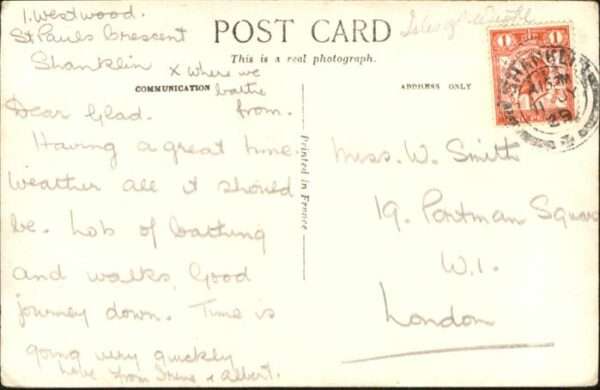 1. Westwood.
St Pauls Crescent
Shanklin
x where we
bathe
from.
POST CARD
This is a real photograph.
COMMUNICATION
ADDRESS ONLY
Isle of Wight
SHANKLIN
29
Printed in France
Dear Glad.
Having a great time.
Weather all it should
be. Lots of bathing
and walks. Good
journey down. Time is
going very quickly
love from Irene & Albert.
Miss. W. Smith
19. Portman Square
W.1.
London